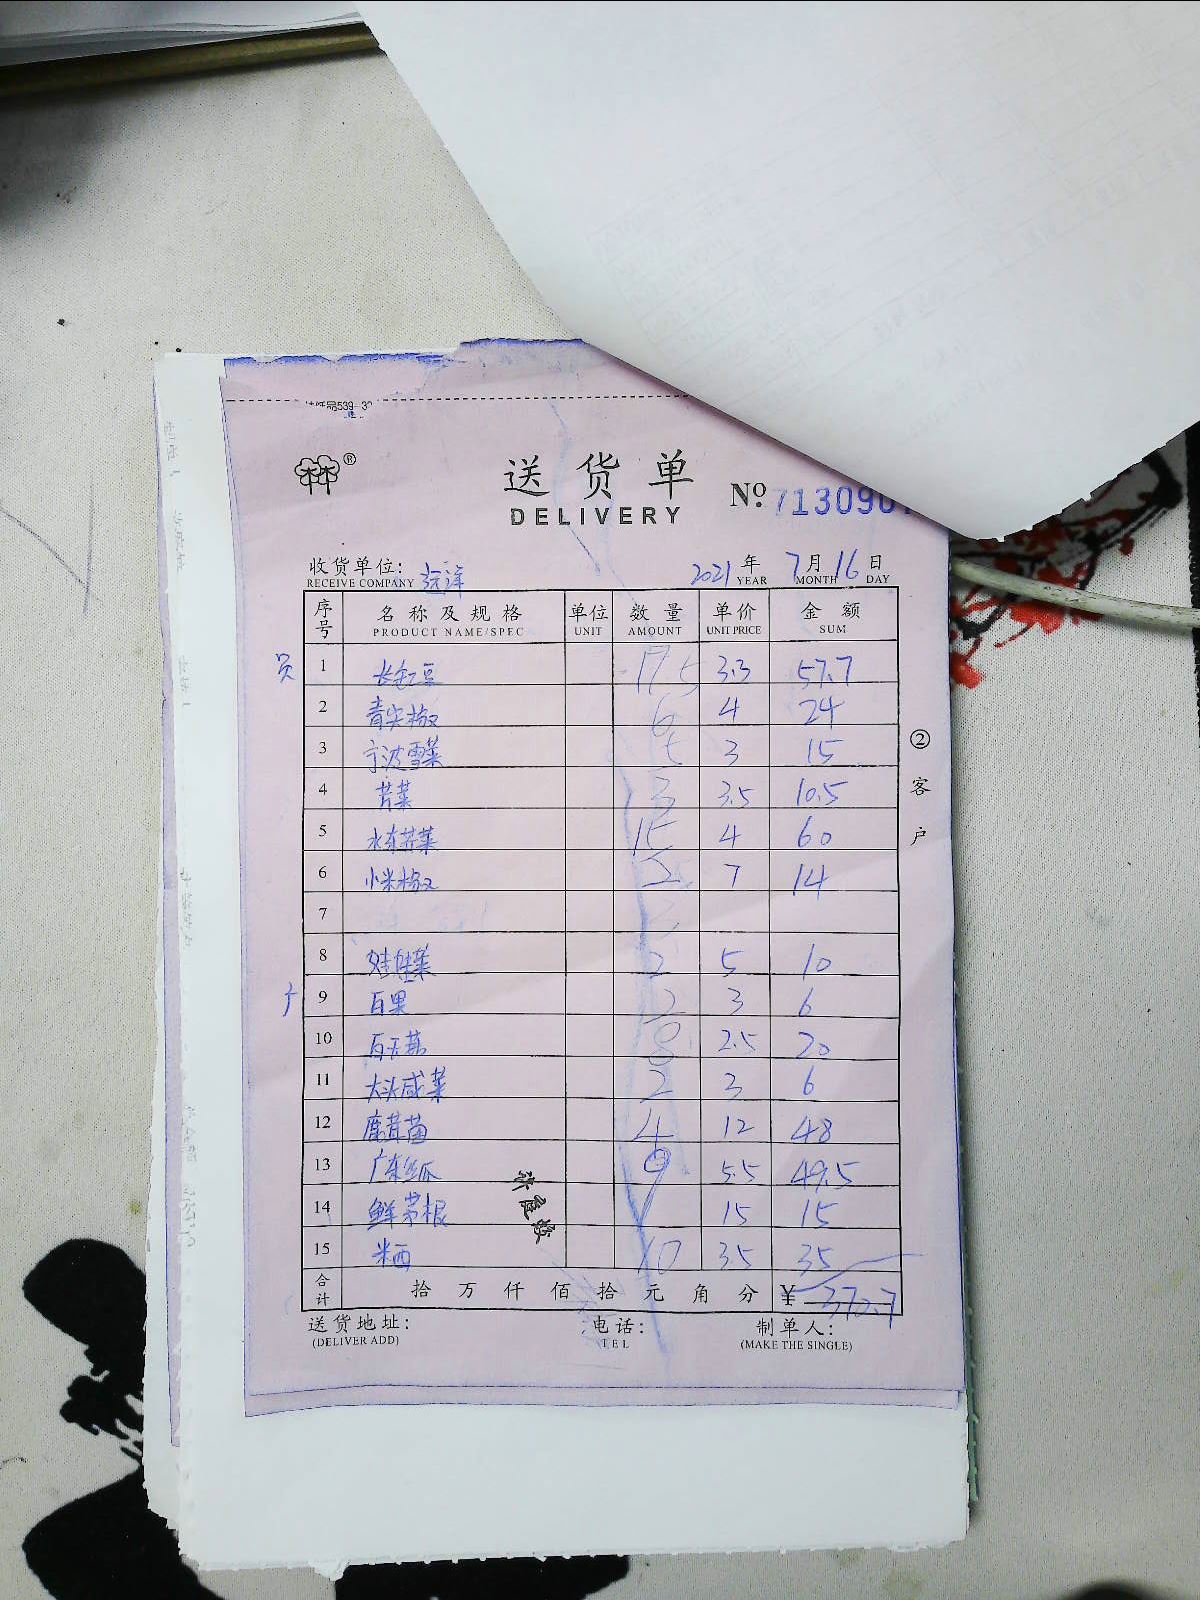 送货单
DELIVERY
No. 713090
收货单位: 远洋 2021年 7月 16日
RECEIVE COMPANY YEAR MONTH DAY
序号 名称及规格 单位 数量 单价 金额
PRODUCT NAME/SPEC UNIT AMOUNT UNIT PRICE SUM
员 1 长豇豆 17.5 3.3 57.7
2 青尖椒 6 4 24
3 宁波雪菜 5 3 15
4 芥菜 3 3.5 10.5
5 水东芥菜 15 4 60
6 小米椒 2 7 14
7
8 娃娃菜 2 5 10
9 百果 2 3 6
10 8 2.5 20
11 大头咸菜 2 3 6
12 鹿茸菌 4 12 48
13 广东丝瓜 9 5.5 49.5
14 鲜茅根 1 15 15
15 米西 10 3.5 35
合计 拾万仟佰拾元角分 ¥ 370.7
送货地址: 电话: 制单人:
(DELIVER ADD) TEL (MAKE THE SINGLE)
② 客户